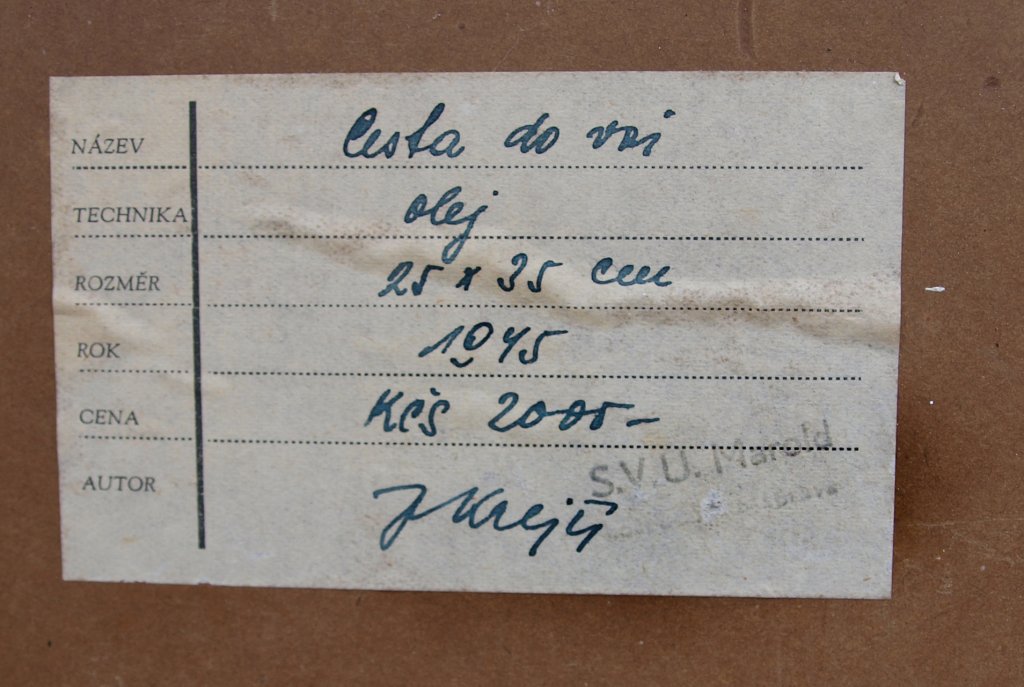 NÁZEV Cesta do vsi
TECHNIKA olej
ROZMĚR 25 x 35 cm
ROK 1945
CENA Kčs 2000-
AUTOR J Krejčí
S.V.U. Marold